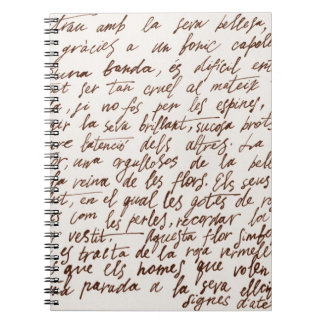 trau amb la seva bellesa,
gràcies a un bonic capoll
una banda, és difícil ent
ot ser tan cruel al mateix
, si no fos per les espines,
ar la seva brillant, sucosa prots
ve l'atenció dels altres. La
or, una orgullosos de la bel
a reina de les flors. Els seus
t, en el qual les gotes de ro
com les perles, recordar la
vestit, Aquesta flor simb
es tracta de la rosa vermell
que els homes que volen
a parada a la seva ellei
signes d'ate